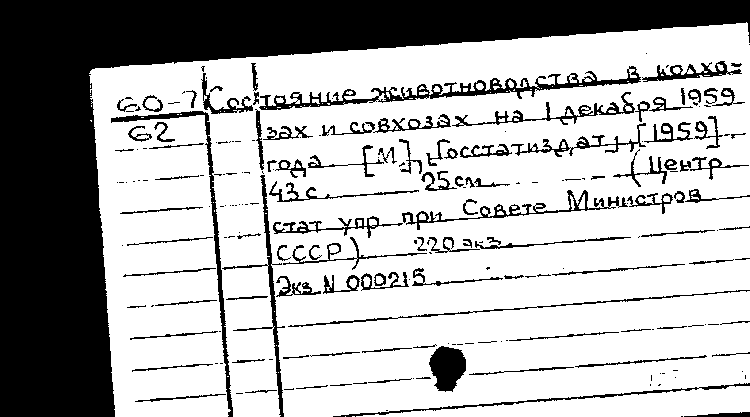 60-7 Состояние животноводства в колхо=
62 зах и совхозах на 1 декабря 1959
года. [М.], [Госстатиздат], [1959].
43 с. 25 см. (Центр.
стат упр при Совете Министров
СССР). 220 экз.
Экз N 000215.